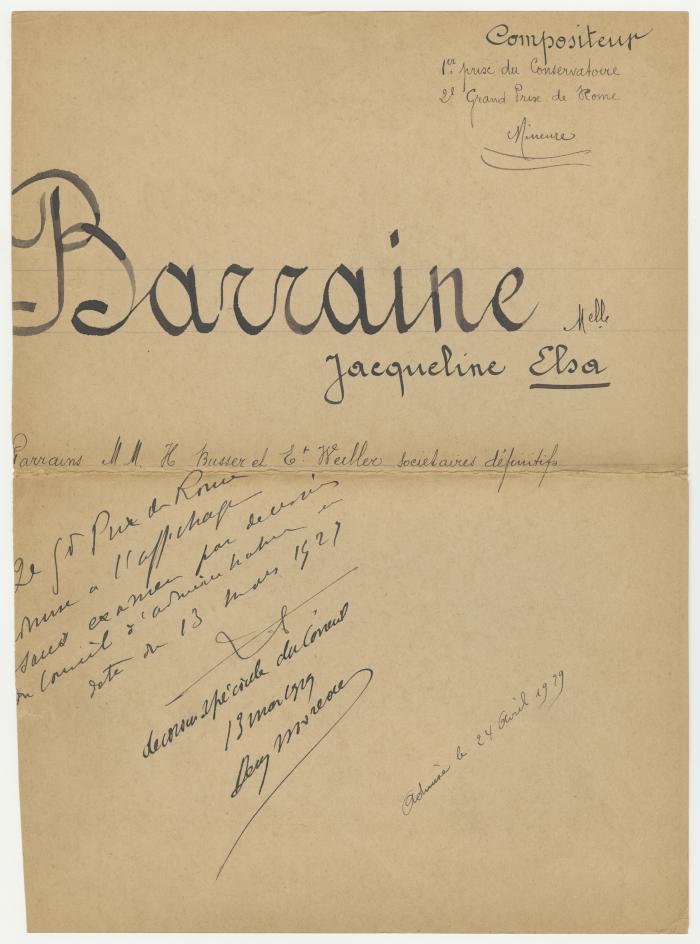 Compositeur
1er prix du Conservatoire
2e Grand Prix de Rome
Mineure
Barraine Melle
Jacqueline Elsa
Parrains MM. H Busser et Et Weiller sociétaires définitifs
2e Gd Prix de Rome
à l'affichage
sans examen par décision
du Conseil d'administration en
date du 13 mars 1929
décision spéciale du Conseil
13 mars 1929
Moreau
Admise le 24 avril 1929